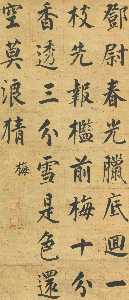 鄧尉春光臘底回一
枝先報檻前梅十分
香透三分雪是色還
空莫浪猜
梅